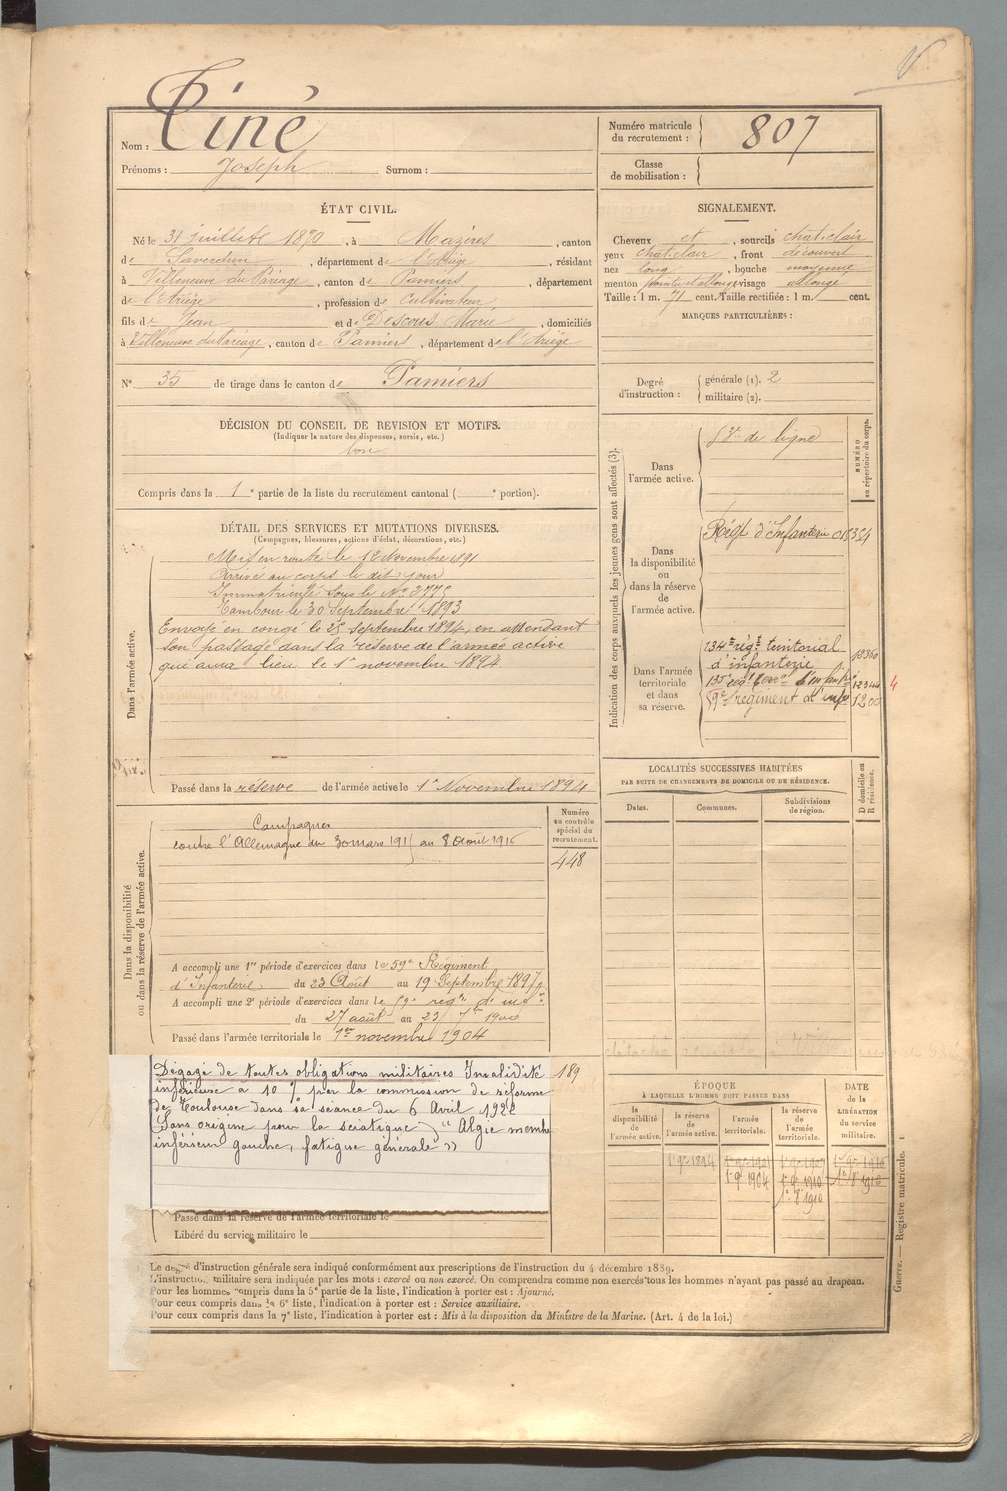 Tiné
Nom :
Prénoms : Joseph Surnom :
Numéro matricule
du recrutement : 807
Classe
de mobilisation :
ÉTAT CIVIL.
Né le 31 juillet 1870, à Mazères, canton
de Saverdun, département de l'Ariège, résidant
à Villeneuve du Paréage, canton de Pamiers, département
de l'Ariège, profession de cultivateur
fils de Jean et de Descous Marie, domiciliés
à Villeneuve du Paréage, canton de Pamiers, département de l'Ariège
N° 35 de tirage dans le canton de Pamiers
SIGNALEMENT.
Cheveux et, sourcils chat. clair
yeux chat. clair, front découvert
nez long, bouche moyenne
menton visage allongé
Taille : 1 m. 71 cent. Taille rectifiée : 1 m. cent.
MARQUES PARTICULIÈRES :
Degré
d'instruction :
générale (1). 2
militaire (2).
DÉCISION DU CONSEIL DE REVISION ET MOTIFS.
(Indiquer la nature des dispenses, sursis, etc.)
bon
Compris dans la 1e partie de la liste du recrutement cantonal ( e portion).
DÉTAIL DES SERVICES ET MUTATIONS DIVERSES.
(Campagnes, blessures, actions d'éclat, décorations, etc.)
Dans l'armée active.
Mis en route le 12 Novembre 1891
Arrivé au corps le dit jour
Immatriculé sous le N°
Tambour le 30 Septembre 1893
Envoyé en congé le 25 septembre 1894, en attendant
son passage dans la réserve de l'armée active
qui aura lieu le 1er novembre 1894
Passé dans la réserve de l'armée active le 1er Novembre 1894
Indication des corps auxquels les jeunes gens sont affectés (3).
NUMÉRO
au répertoire du corps.
Dans
l'armée active.
de ligne
Dans
la disponibilité
ou dans la réserve
de
l'armée active.
Régt d'Infanterie
Dans l'armée
territoriale
et dans
sa réserve.
134e régt territorial
d'infanterie 12360
135e régt terr. d'infant. 12344 4
régiment d'inf 1200
LOCALITÉS SUCCESSIVES HABITÉES
PAR SUITE DE CHANGEMENTS DE DOMICILE OU DE RÉSIDENCE.
Dates. Communes. Subdivisions
de région.
D domicile ou
R résidence.
Dans la disponibilité
ou dans la réserve de l'armée active.
Numéro
au contrôle
spécial du
recrutement.
448
Campagnes
contre l'Allemagne du 30 mars 1915 au 8 Août 1916
A accompli une 1re période d'exercices dans le 59e Régiment
d'Infanterie du 23 Août au 19 Septembre 1897
A accompli une 2e période d'exercices dans le 59e régt d'inf
du 27 août au 23 7bre 1900
Passé dans l'armée territoriale le 1er novembre 1904
Dégagé de toutes obligations militaires Invalidité 189
inférieure à 10 % par la commission de réforme
de Toulouse dans sa séance du 6 Avril 1922
(Sans origine pour la sciatique) " Algie membre
inférieur gauche, fatigue générale "
Passé dans la réserve de l'armée territoriale le
Libéré du service militaire le
ÉPOQUE
À LAQUELLE L'HOMME DOIT PASSER DANS
la
disponibilité
de
l'armée active.
la réserve
de
l'armée active.
l'armée
territoriale.
la réserve
de
l'armée
territoriale.
DATE
de la
LIBÉRATION
du service
militaire.
Guerre. — Registre matricule. 1
Le degré d'instruction générale sera indiqué conformément aux prescriptions de l'instruction du 4 décembre 1889.
L'instruction militaire sera indiquée par les mots : exercé ou non exercé. On comprendra comme non exercés tous les hommes n'ayant pas passé au drapeau.
Pour les hommes compris dans la 5e partie de la liste, l'indication à porter est : Ajourné.
Pour ceux compris dans la 6e liste, l'indication à porter est : Service auxiliaire.
Pour ceux compris dans la 7e liste, l'indication à porter est : Mis à la disposition du Ministre de la Marine. (Art. 4 de la loi.)